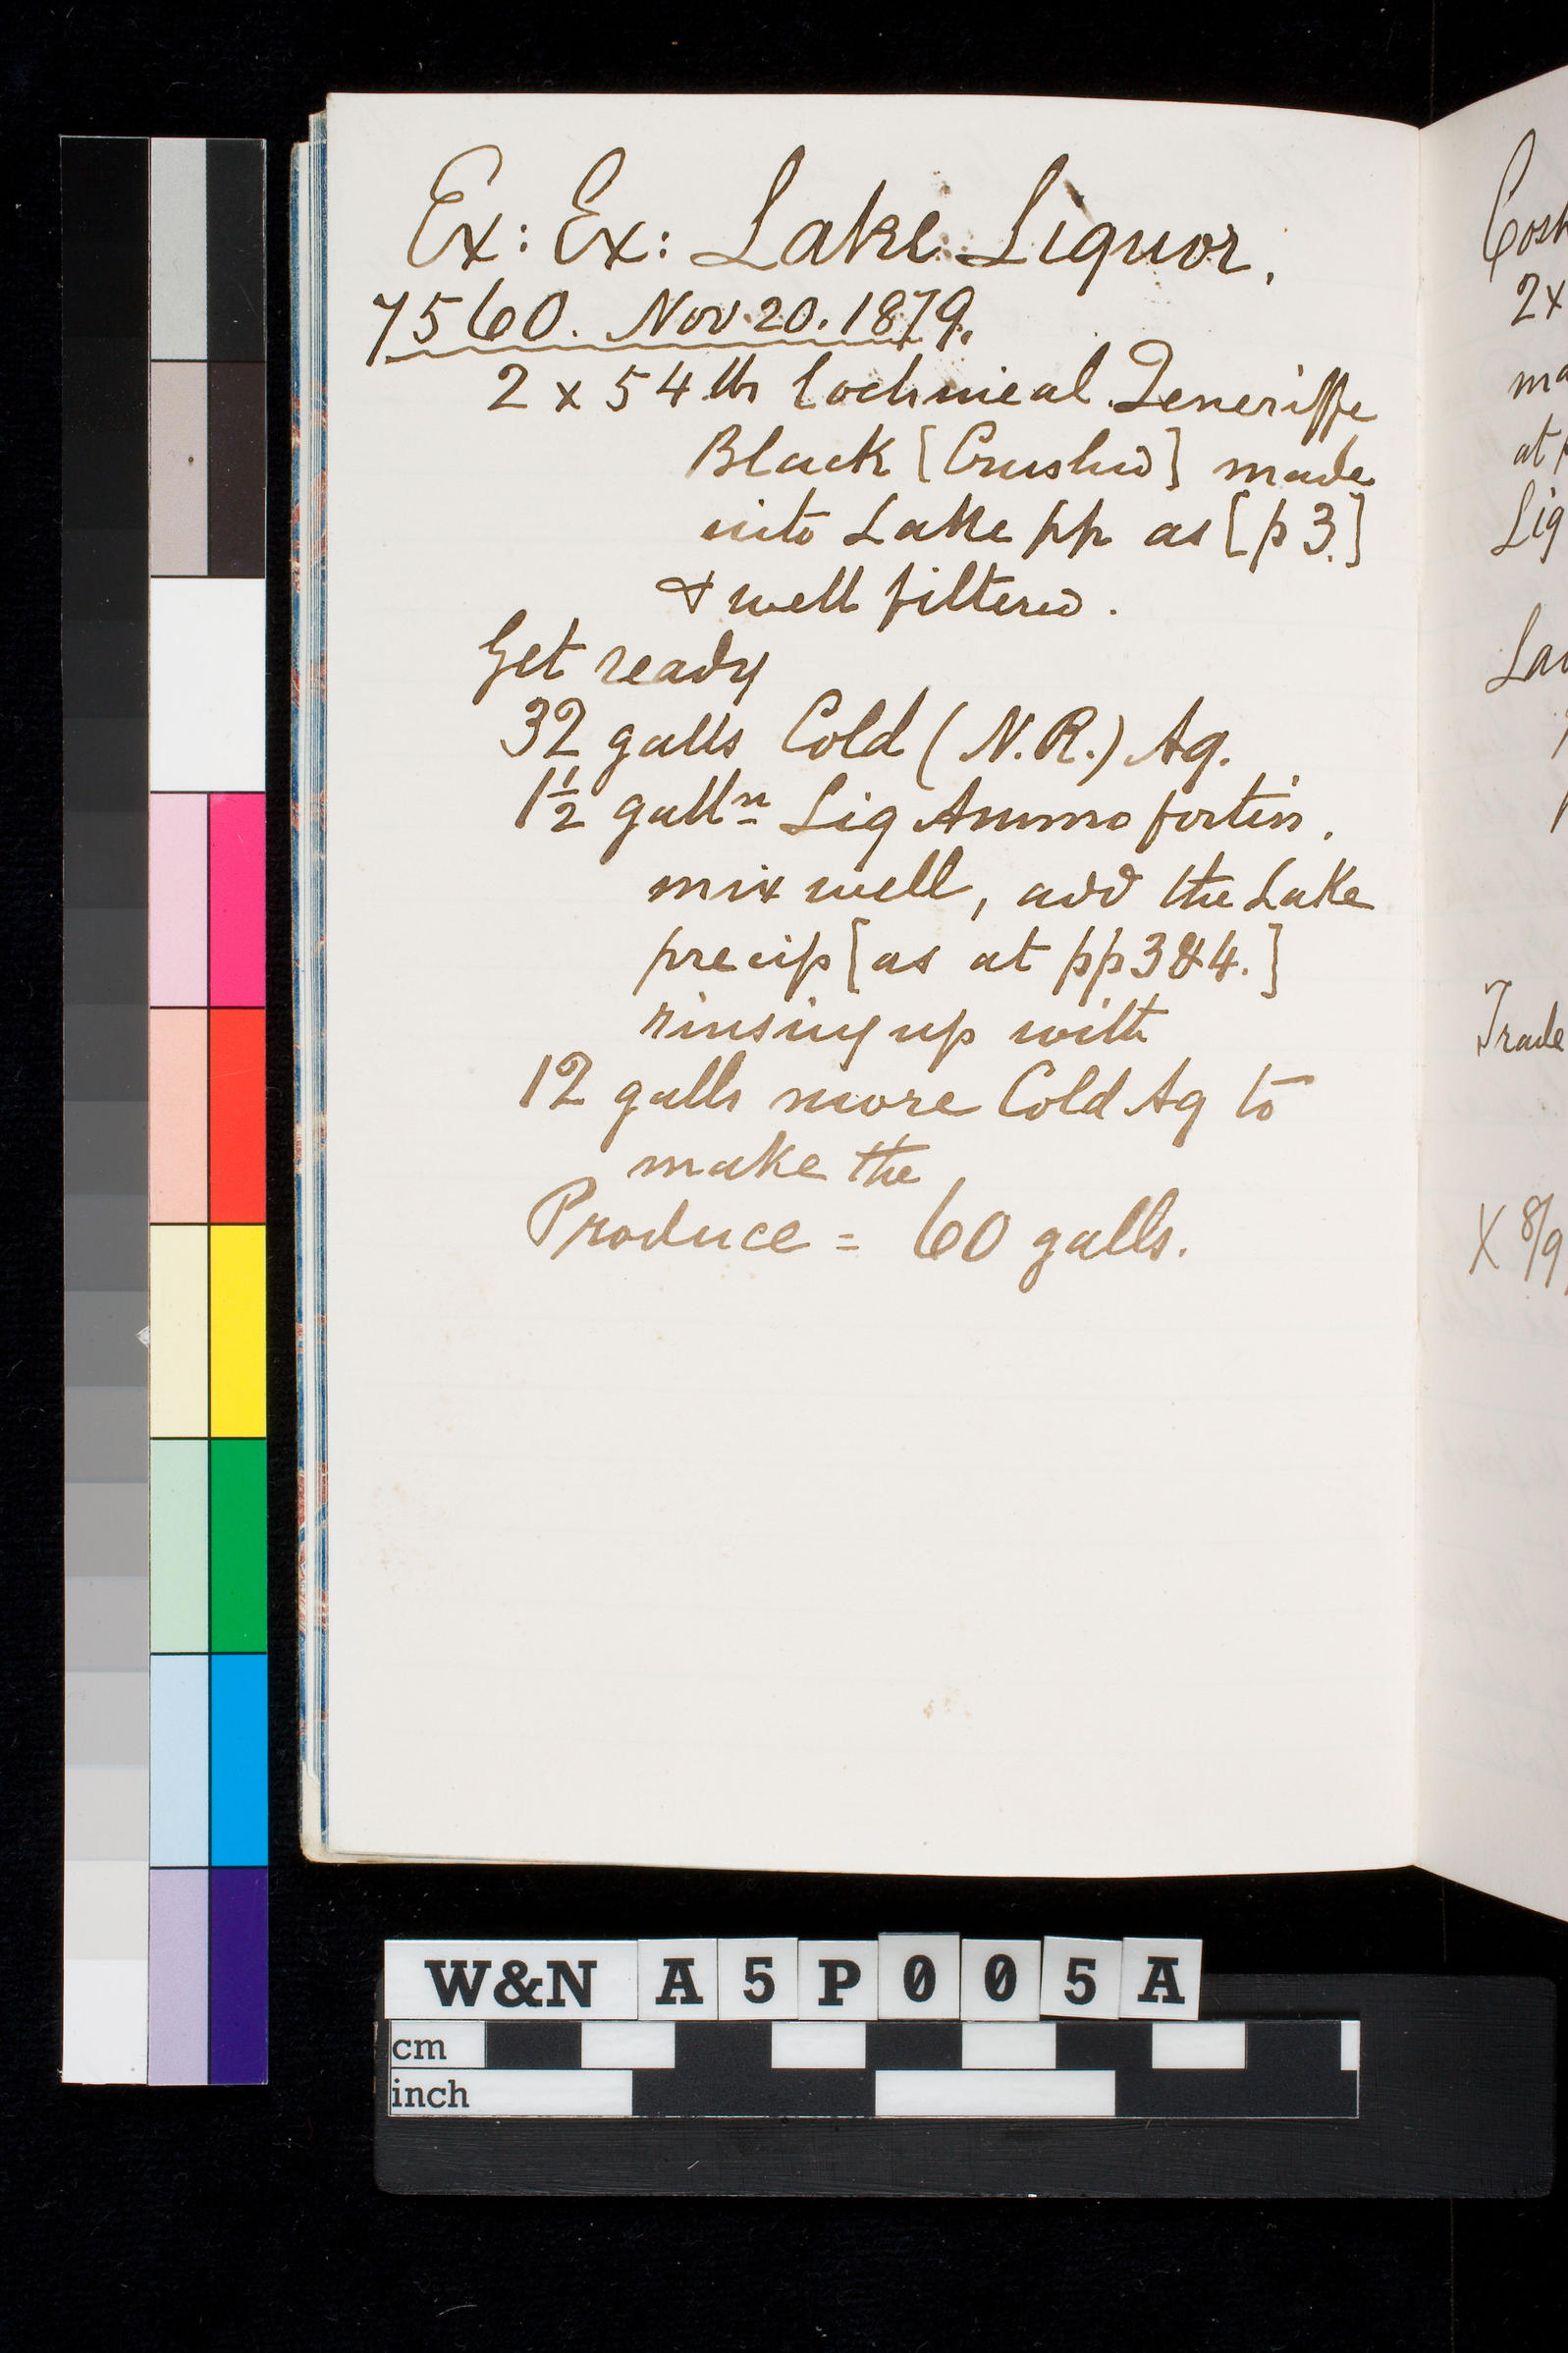 Ex: Ex: Lake Liquor.
7560. Nov. 20. 1879.
2 x 54 lbs Cochineal Teneriffe
Black [Crushed] made
into Lake pp as [p 3.]
& well filtered.
Get ready
32 galls Cold (N.R.) Aq.
1½ galln Liq Ammo fortiss.
mix well, add the Lake
precip [as at pp 3 & 4.]
rinsing up with
12 galls more Cold Aq to
make the
Produce = 60 galls.
2x
at
Liq
Trade
X 8/9
W&N A5P005A
cm
inch